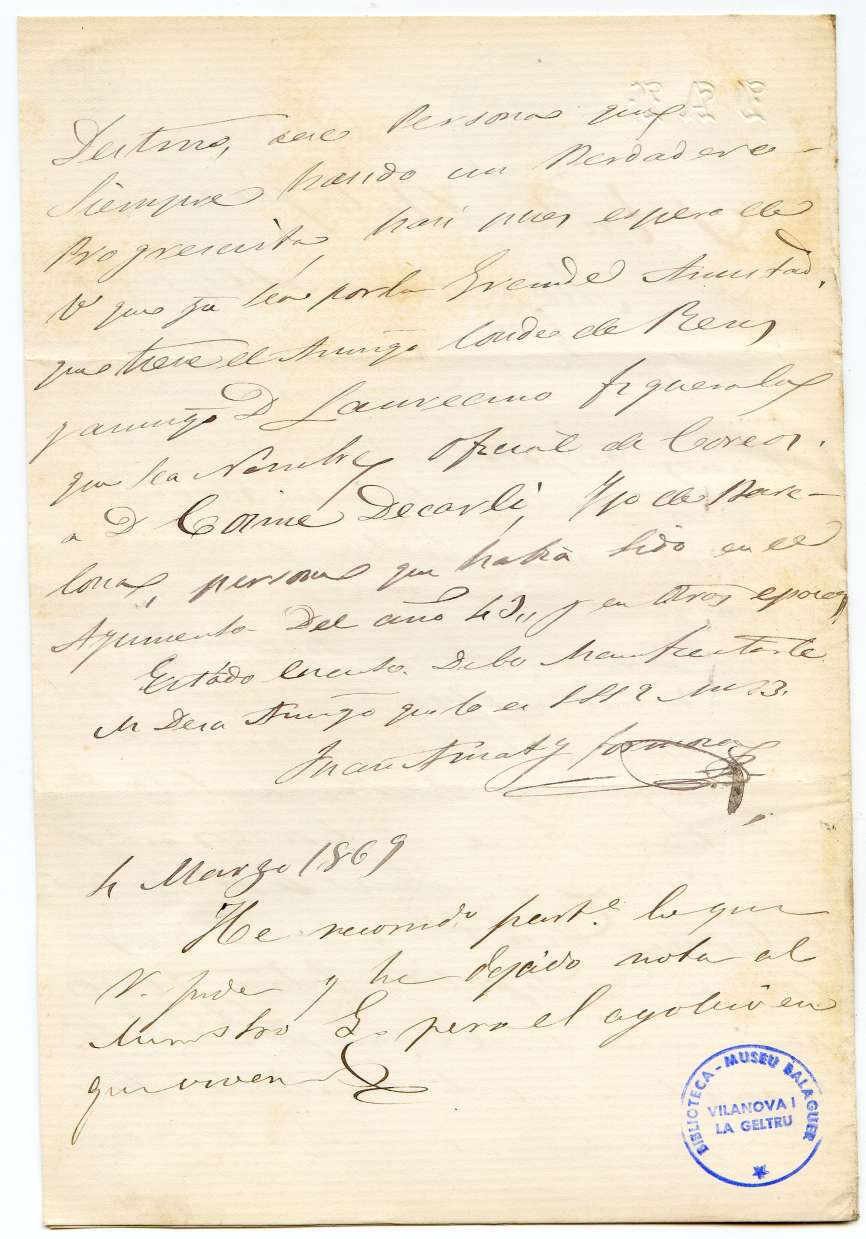 Destino, ese Persona que
Siempre hasido un Verdadero
Progrecista, hasi pues espero de
V que ya sea porla Grande Amistad,
que tiene el Amigo Conde de Reus
yamigo D Laureano Figuerola,
que sea Nombre Oficial de Coreos.
a D Cosme Decarli, Yjo de Barce-
lona, persona que habia sido en el
Ayumento Del año 43,, y en otros epocas
Estádo Cuento. Debo Manifestarle
M Desa Amigo que le es S S S Q M B.
Juan Amat y
4 Marzo 1869
He recomdo. parte. lo que
V. pide y he dejado nota al
Ministro G. pero el agobio en
que viven
BIBLIOTECA - MUSEU BALAGUER
VILANOVA I
LA GELTRU